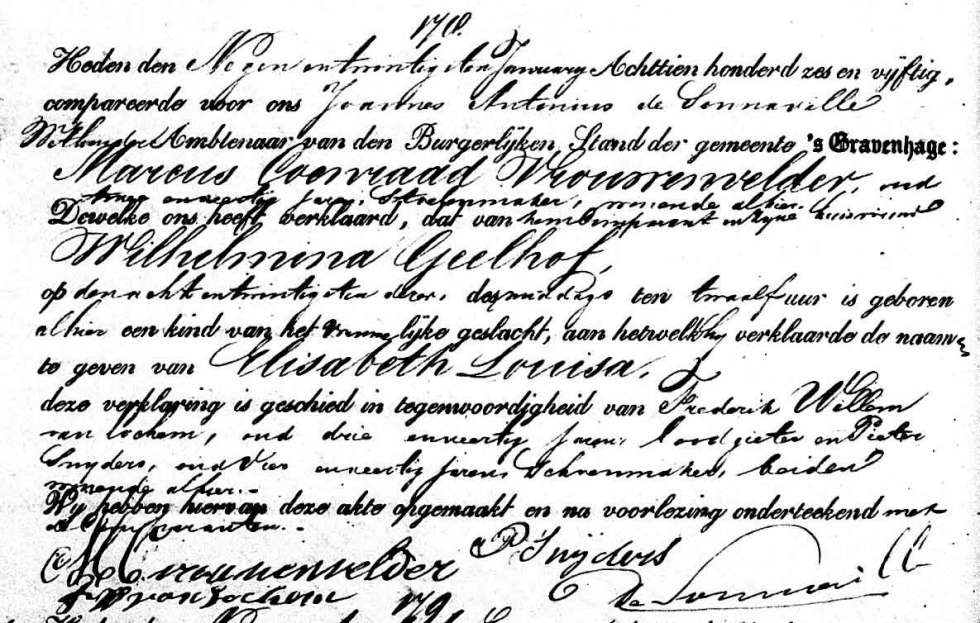 178.
Heden den Negen en twintigsten January Achttien honderd zes en vijftig,
compareerde voor ons Joannes Antonius de Sonnaville
Wethouder Ambtenaar van den Burgerlijken Stand der gemeente 's Gravenhage:
Marcus Coenraad Vrouwenvelder, oud
twee en veertig jaren, Schoenmaker, wonende alhier.
Dewelke ons heeft verklaard, dat van hem Comparant en zijne huisvrouw
Wilhelmina Geelhof,
op den acht en twintigsten dezer, des middags ten twaalf uur is geboren
alhier een kind van het vrouwelijke geslacht, aan hetwelk hij verklaarde de naamen
te geven van Elisabeth Louisa.
deze verklaring is geschied in tegenwoordigheid van Frederik Willem
van Lochem, oud drie en veertig jaren, loodgieter en Pieter
Snyders, oud Vier en veertig jaren Schoenmaker, beiden
wonende alhier.-
Wij hebben hiervan deze akte opgemaakt en na voorlezing onderteekend met
de Comparanten.-
M C vrouwenvelder P Snijders
F W van Lochem de Sonnavill
179.